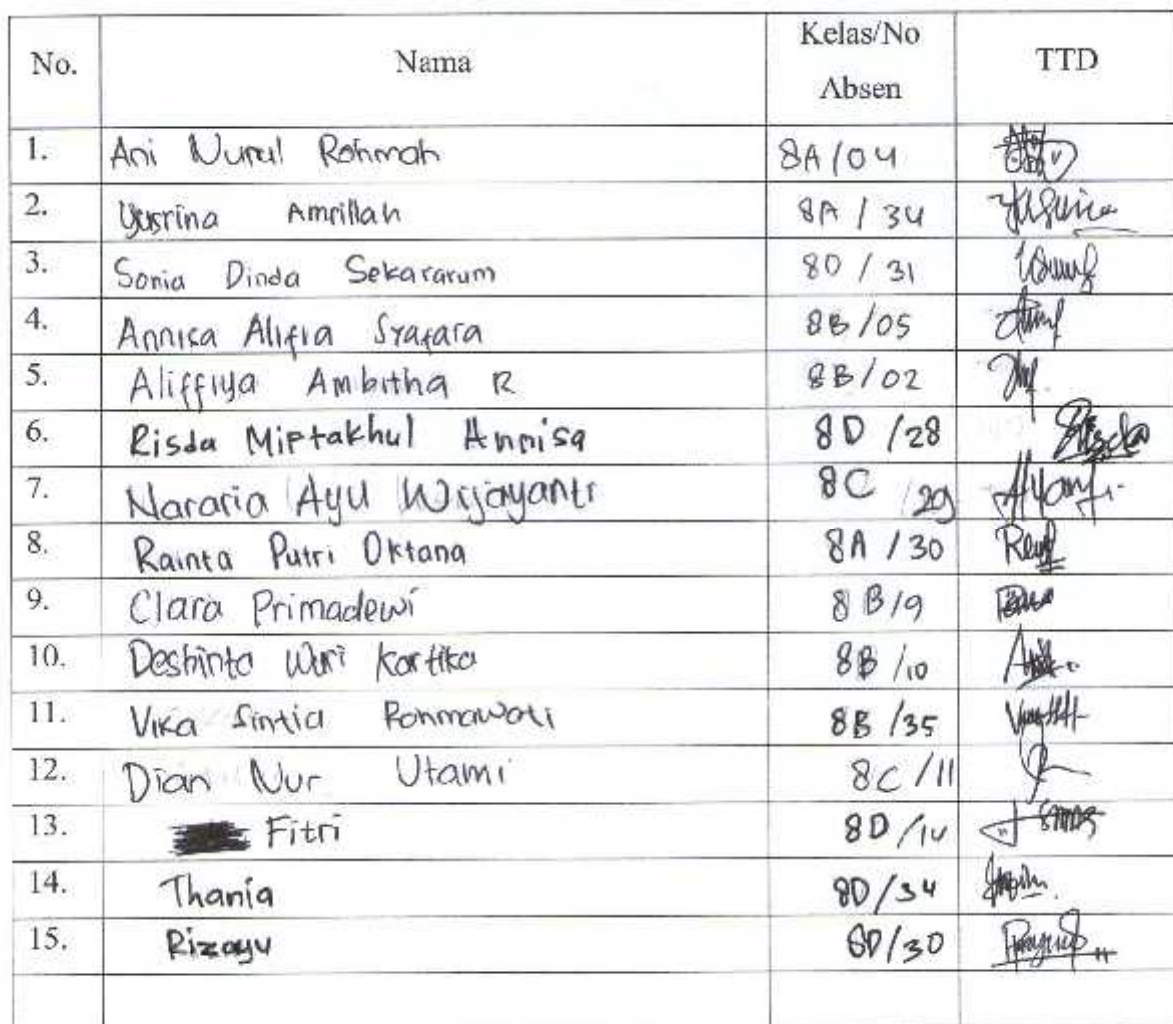 No. Nama Kelas/No Absen TTD
1. Ani Nurul Rohmah 8A/04
2. Yusrina Amrillah 8A / 34
3. Sonia Dinda Sekararum 8D / 31
4. Annisa Alifia Syafara 8B/05
5. Aliffiya Ambitha R 8B/02
6. Risda Miftakhul Annisa 8D /28
7. Nararia Ayu Wijayanti 8C /29
8. Rainta Putri Oktana 8A / 30
9. Clara Primadewi 8 B/9
10. Deshinta Wuri Kartika 8B /10
11. Vika Sintia Rohmawati 8B /35
12. Dian Nur Utami 8C /11
13. Fitri 8D /14
14. Thania 8D/34
15. Rizayu 8D/30